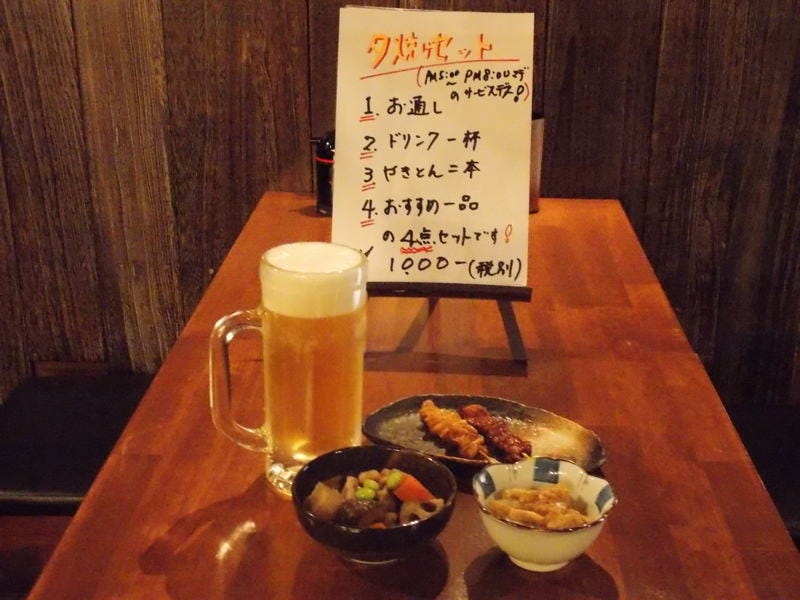 夕焼けセット
(PM5:00～PM8:00まで
のサービスデス!)
1. お通し
2. ドリンク一杯
3 やきとん二本
4. おすすめ一品
の4点セットです!
¥1,000-(税別)